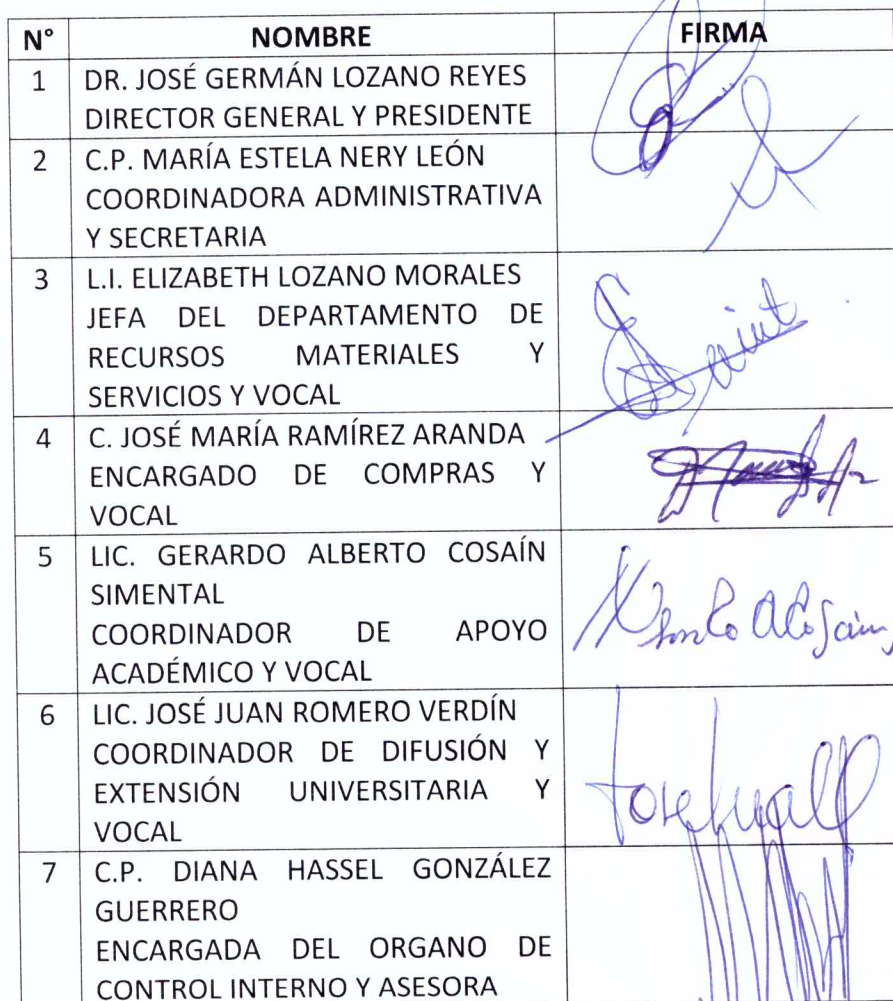 N° NOMBRE FIRMA
1 DR. JOSÉ GERMÁN LOZANO REYES
DIRECTOR GENERAL Y PRESIDENTE
2 C.P. MARÍA ESTELA NERY LEÓN
COORDINADORA ADMINISTRATIVA
Y SECRETARIA
3 L.I. ELIZABETH LOZANO MORALES
JEFA DEL DEPARTAMENTO DE
RECURSOS MATERIALES Y
SERVICIOS Y VOCAL
4 C. JOSÉ MARÍA RAMÍREZ ARANDA
ENCARGADO DE COMPRAS Y
VOCAL
5 LIC. GERARDO ALBERTO COSAÍN
SIMENTAL
COORDINADOR DE APOYO
ACADÉMICO Y VOCAL
6 LIC. JOSÉ JUAN ROMERO VERDÍN
COORDINADOR DE DIFUSIÓN Y
EXTENSIÓN UNIVERSITARIA Y
VOCAL
7 C.P. DIANA HASSEL GONZÁLEZ
GUERRERO
ENCARGADA DEL ORGANO DE
CONTROL INTERNO Y ASESORA